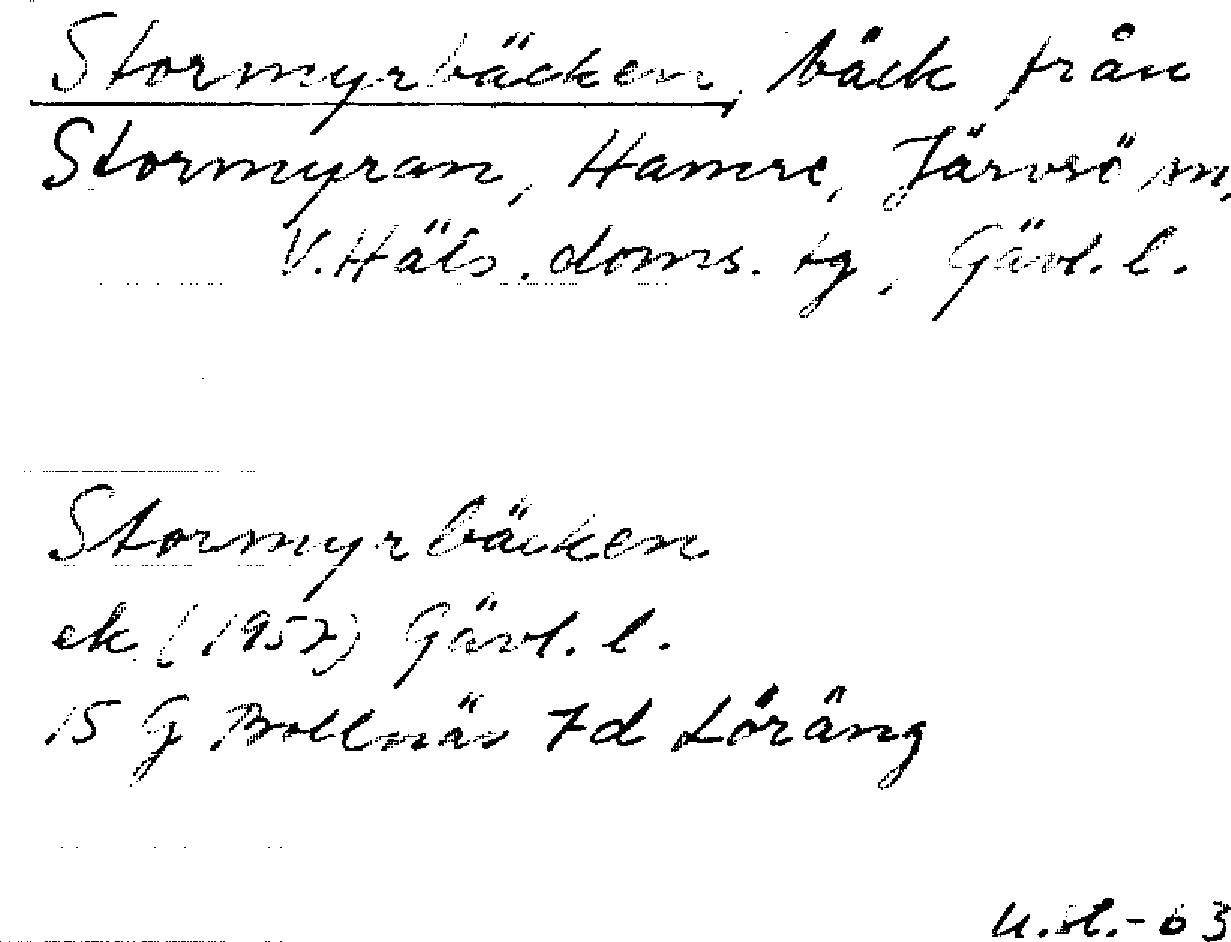 Stormyrbäcken, bäck från
Stormyran, Hamre, Järvsö sn,
V. Häls. doms. tg, Gävl. l.
Stormyrbäcken
ek (1957) Gävl. l.
15 G Bollnäs 7d Löräng
U.H.-63